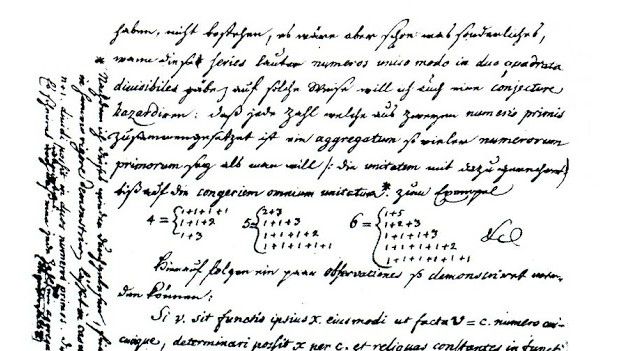 haben, nicht bestehen, es wäre aber schon was sonderliches,
wann diese series lauter numeros unico modo in duo quadrata
divisibiles gäbe, auf solche Weise will ich auch eine conjecture
hazardiren: daß jede Zahl welche aus zweyen numeris primis
zusammengesetzet ist ein aggregatum so vieler numerorum
primorum sey als man will /: die unitatem mit dazu gerechnet
biß auf die congeriem omnium unitatum * zum Exempel
4 = { 1+1+1+1 5 = { 2+3 6 = { 1+5
1+1+2 1+1+3 1+2+3
1+3 1+1+1+2 1+1+1+3
1+1+1+1+1 1+1+1+1+2
1+1+1+1+1+1 &c
Hierauf folgen ein paar observationes so demonstriret wer-
den können:
Si v. sit functio ipsius x. eiusmodi ut facta v = c. numero cui-
cunque, determinari possit x per c. et reliquas constantes in functi
* Nachdem ich dieses wieder durchgelesen, finde
in summo rigore demonstriren läßet in casu
dividi possit in duos numeros primos.
Es scheinet wenigstens daß eine jede Zahl